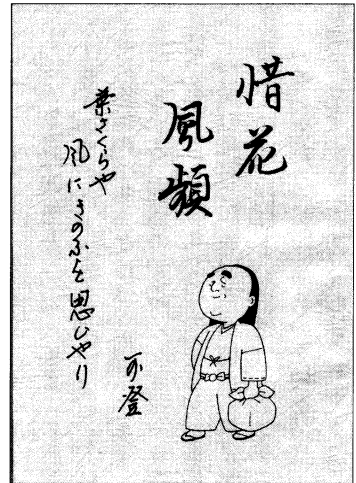 惜花
風頻
葉さくらや
風にきのふを思ひやり
可登